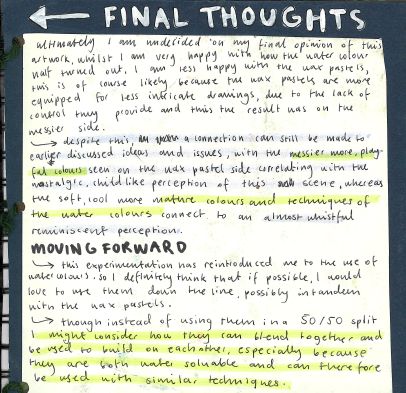 FINAL THOUGHTS
ultimately I am undecided on my final opinion of this
artwork, whilst I am very happy with how the water colour
half turned out, I am less happy with the wax pastels,
this is of course likely because the wax pastels are more
equipped for less intricate drawings, due to the lack of
control they provide and thus the result was on the
messier side.
despite this, a connection can still be made to
earlier discussed ideas and issues, with the messier more, play-
ful colours seen on the wax pastel side correlating with the
nostalgic, child like perception of this scene, whereas
the soft, cool more mature colours and techniques of
the water colours connect to an almost whistful
reminiscent perception.
MOVING FORWARD
this experimentation has reintroduced me to the use of
watercolours. so I definitely think that if possible, I would
love to use them down the line, possibly in tandem
with the wax pastels.
though instead of using them in a 50/50 split
I might consider how they can blend together and
be used to build on each other, especially because
they are both water soluable and can therefore
be used with similar techniques.